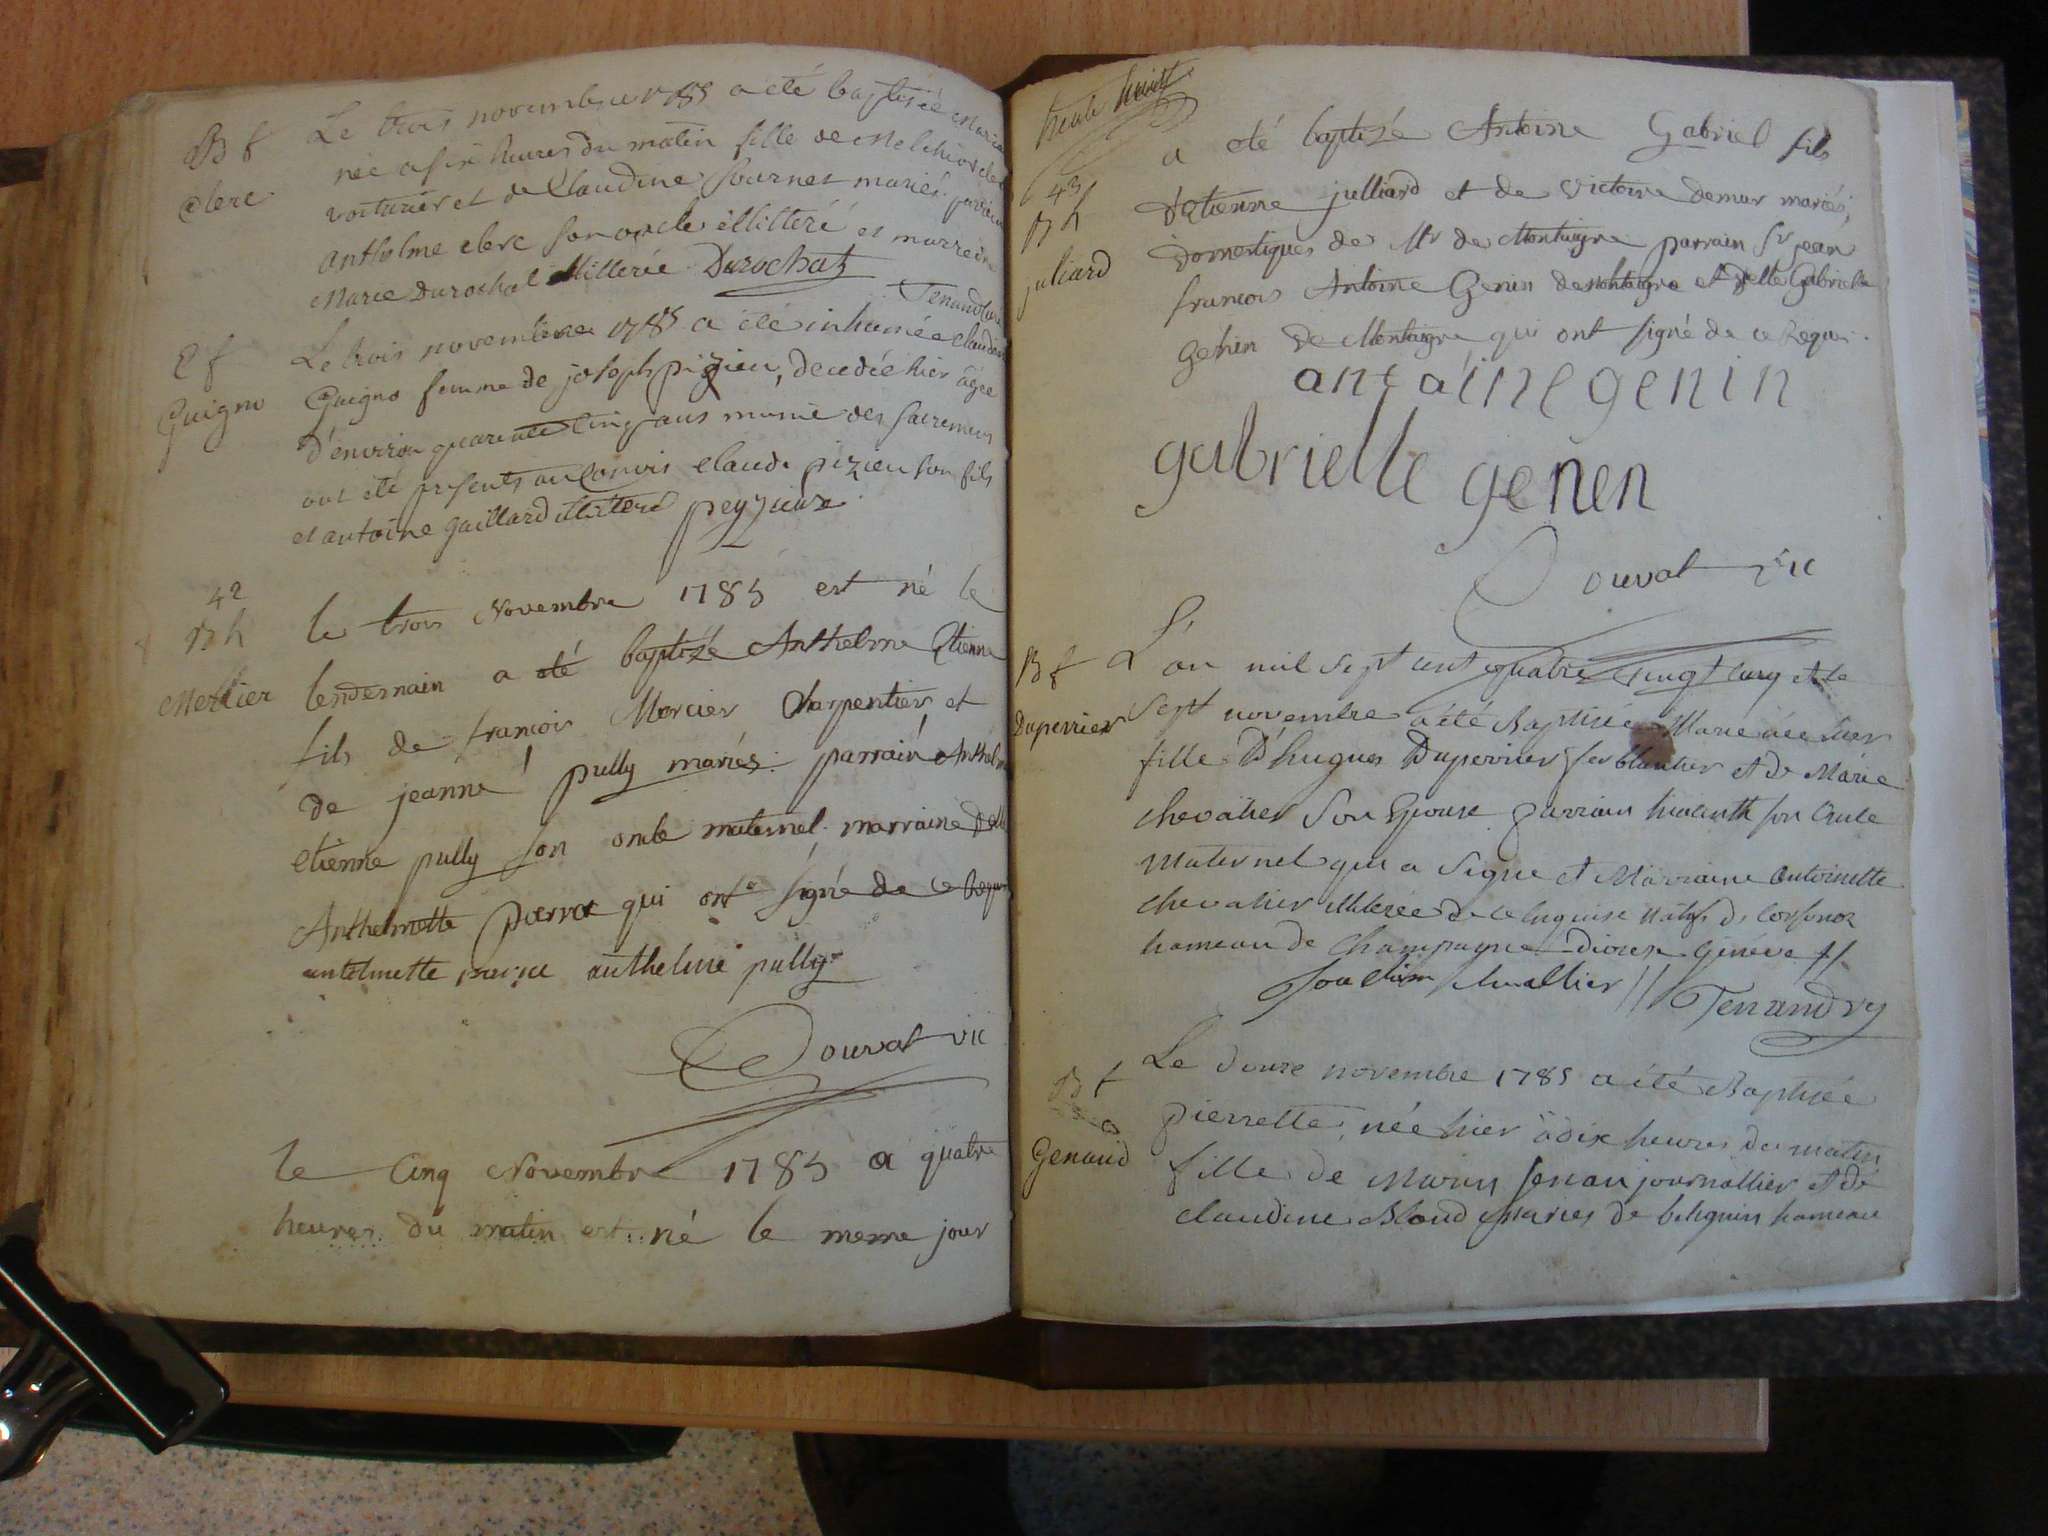 B f
Clerc
Le trois novembre 1785 a été baptisée Marie
née a six heures du matin fille de Melchior cler
voiturier et de Claudine fournet mariés. parrain
anthelme clerc son oncle illitteré et marreine
Marie Durochat illiterée. Durochat
Tenand
E f
Guigno
Le trois novembre 1785 a été inhumée claudine
Guigno femme de joseph pizieu, decedée hier agée
d'environ quarante cinq ans munie des sacremens
ont été présents au convis claude pizieu son fils
et antoine gaillard illitteré peyzieux
42
B h
Mercier
le trois Novembre 1785 est né le
lendemain a été baptizé Anthelme Etienne
fils de francois Mercier Charpentier, et
de jeanne pully mariés. parrain Anthelme
etienne pully son oncle maternel. marraine Delle
Anthelmette pierra qui ont signé de ce Requis
antelmette anthelme pully
Douvat vic
le Cinq Novembre 1785 a quatre
heures du matin est né le meme jour
trente huit
43
B h
juliard
a eté baptizé Antoine Gabriel fils
d'Etienne julliard et de Victoire demur mariés,
domestiques de Mr de Montaigre parrain Sr jean
francois Antoine Genin de Montaigre et Delle Gabrielle
Genin de Montaigre qui ont signé de ce Requis.
antoine genin
gabrielle genen
Douvat vic
B f
Duperrier
L'an mil sept cent quatre vingt cinq et le
sept novembre a été Baptisée Marie née hier
fille D'hugues Duperrier ferblantier et de Marie
chevalier son Epouse parrain hiacinth son oncle
maternel qui a signé et Marraine antoinette
chevalier illiterée de ce enquise natifs de
hameau de Champagne diocese Géneve //
Tenandry
B f
Genaud
Le douze novembre 1785 a été Baptisée
pierrette, née hier à dix heures du matin
fille de Marin Jenau journallier et de
claudine Blond mariés de belignin hameau